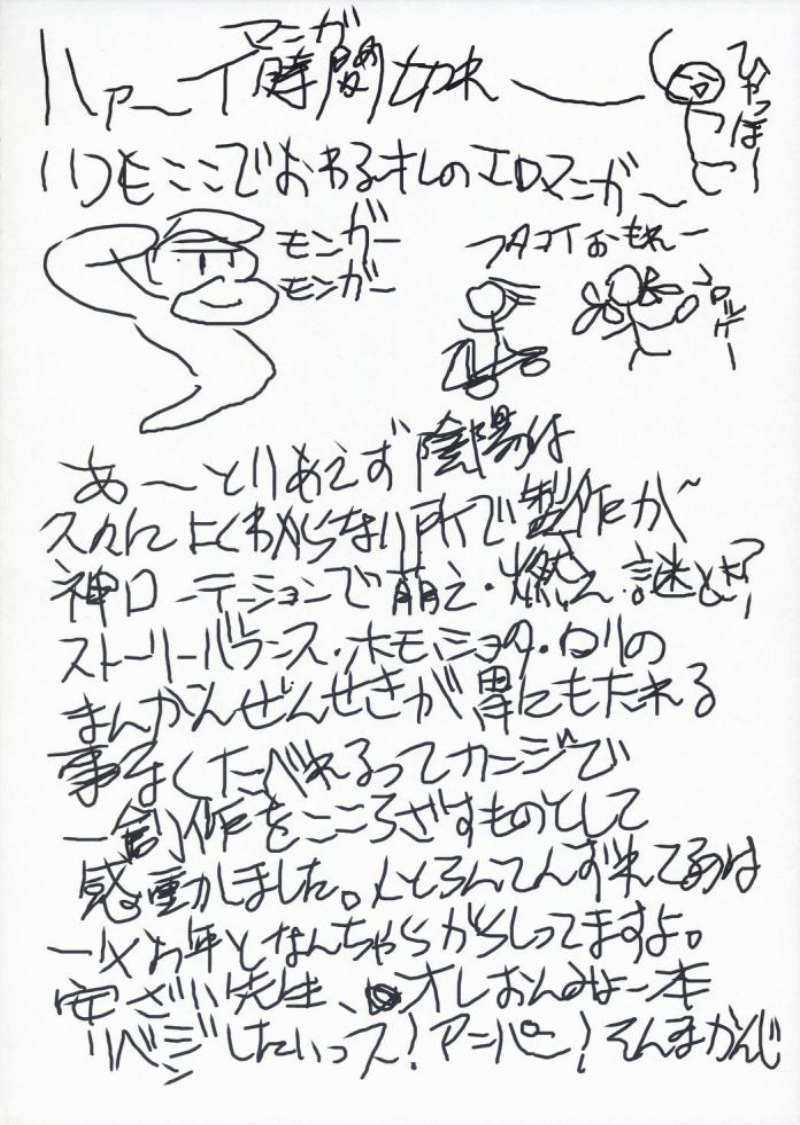 マンガ
ハァーイ時間切れ
ひゃっほー
いつもここでおわるオレのエロマンガー
モンガー
モンガー
フタコイおもれー
コロッケー
あーとりあえず陰陽は
久々によくわからない所で製作が
神ローテーションで萌え・燃え・謎とき?
ストーリーバランス・ホモ・ショタ・ロリの
まんかんぜんせきが胃にもたれる
事なくたべれるってカンジで
一創作をこころざすものとして
感動しました。
お年となんちゃらがらしってますよ。
安ざい先生、オレおんみょー本
リベンジしたいっス!アニパー!そんまかんじ